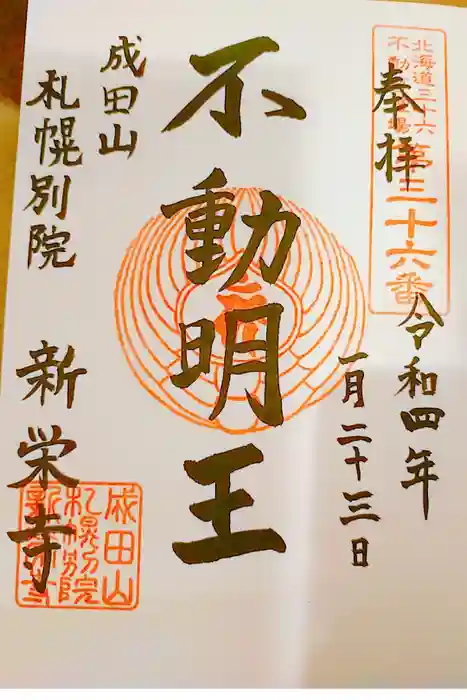 奉拝
北海道三十六
不動霊場
第三十六番
令和四年
一月二十三日
不動明王
成田山
札幌別院
新栄寺
成田山
札幌別院
新栄寺